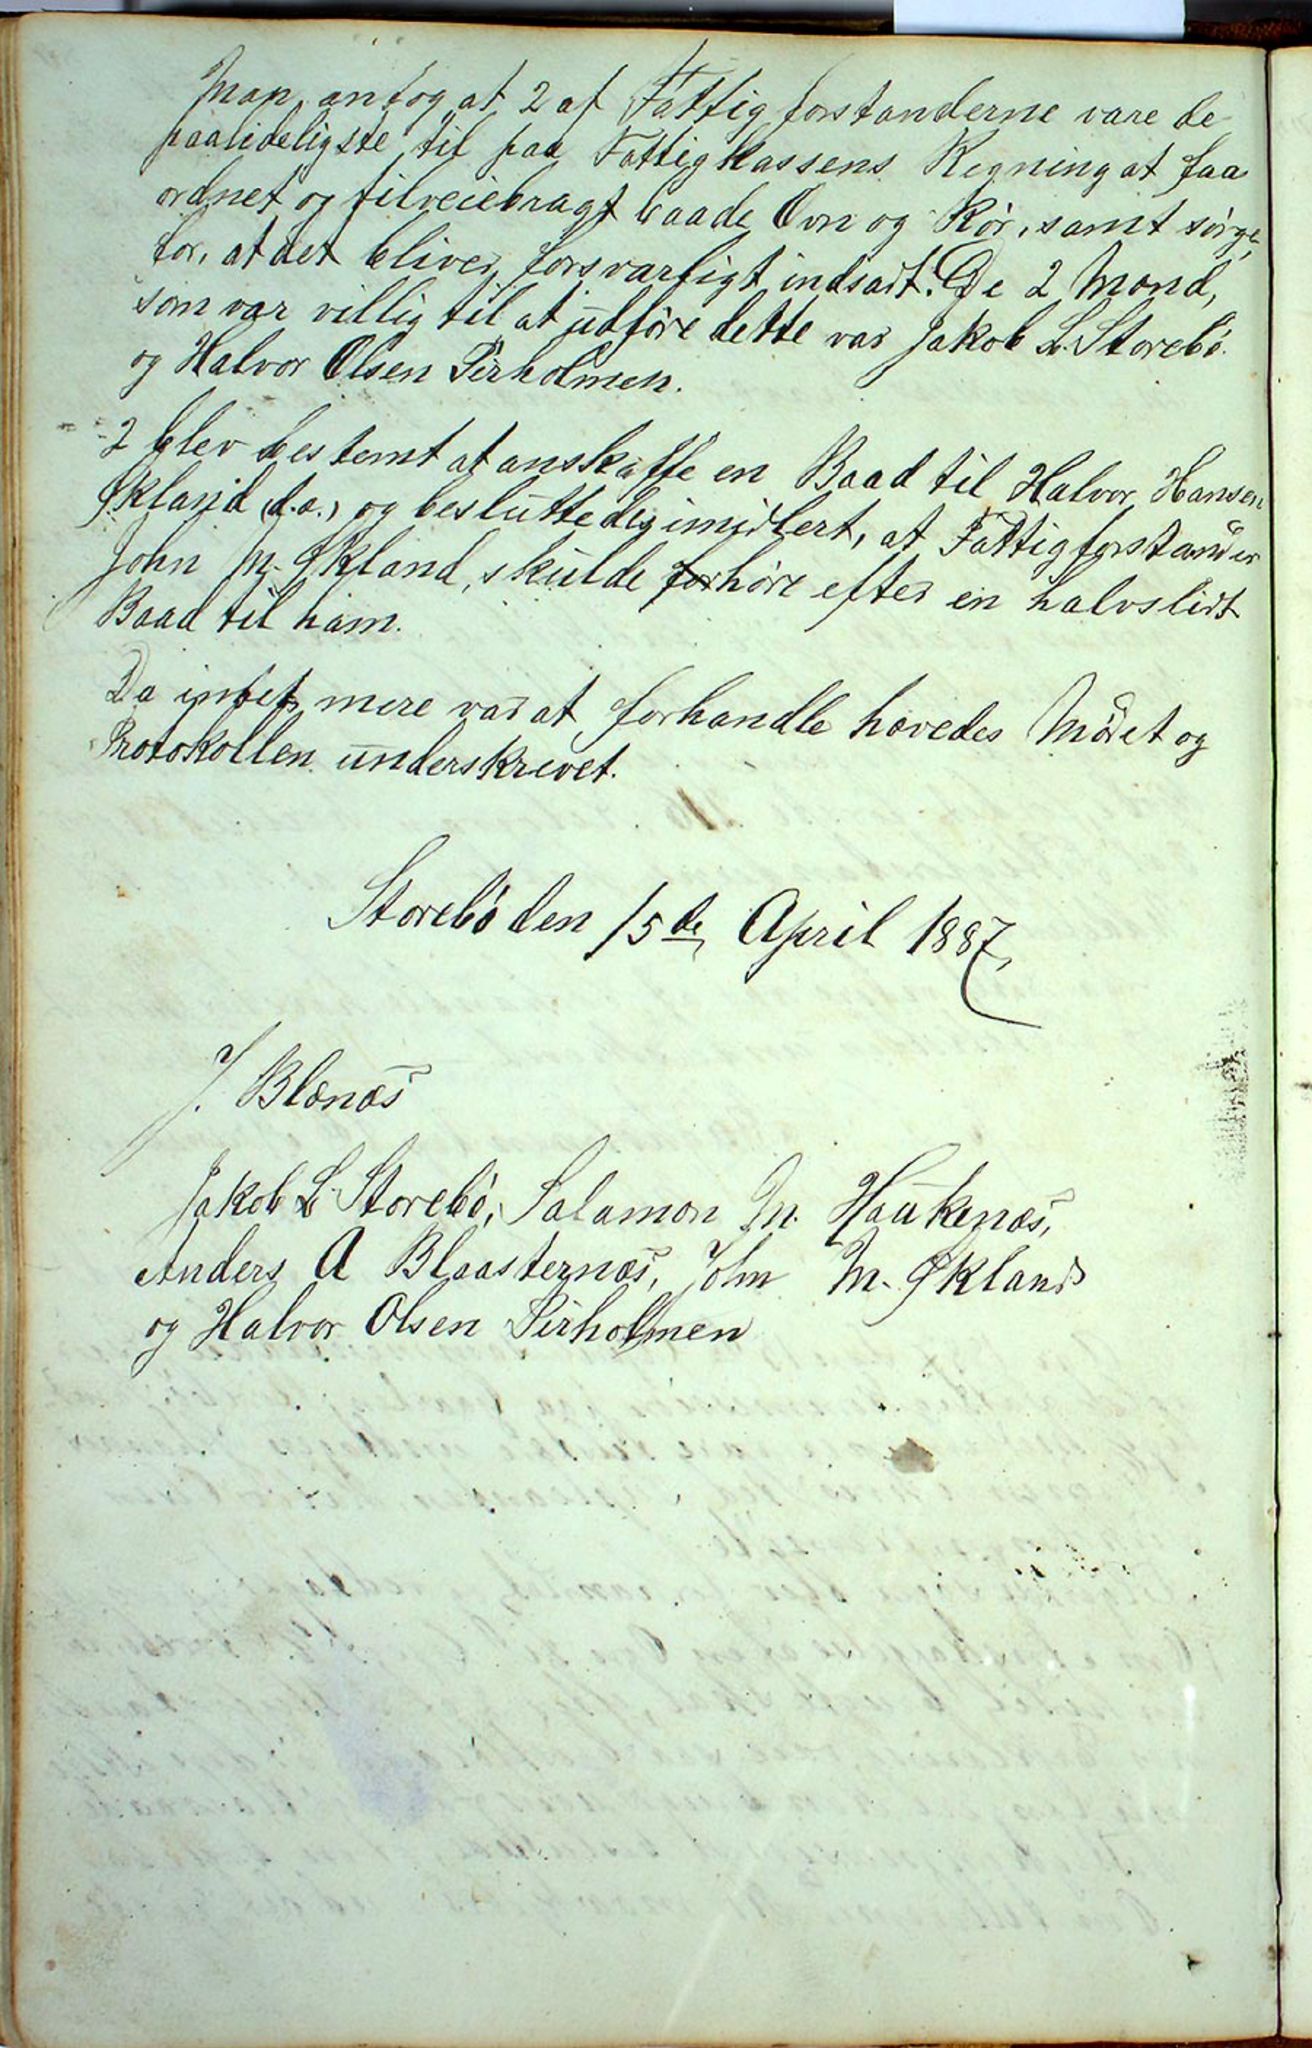 Man antog at 2 af Fattigforstanderne vare de
paalideligste til paa Fattigkassens Regning at faa
ordnet og tilveiebragt baade Ovn og Rör, samt sörge
for, at det bliver forsvarligt indsadt. De 2 Mænd,
som var villig til at udföre dette var Jakob L. Storebö
og Halvor Olsen Pirholmen.
2 blev bestemt at anskaffe en Baad til Halvor Hansen
Økland (d.a.) og besluttedes imidlert, at Fattigforstander
John M. Økland, skulde forhöre efter en halvslidt
Baad til ham.
Da intet mere var at forhandle hævedes Mödet og
Protokollen underskrevet.
Storebö den 15de April 1887,
J. Blænæs
Jakob L. Storebö, Salamon M. Haukenæs,
Anders A Blaasternæs, John M. Økland
og Halvor Olsen Pirholmen